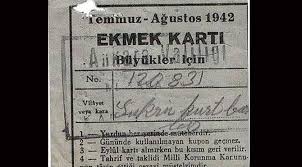 Temmuz - Ağustos 1942
EKMEK KARTI
Ankara Valiliği
Büyükler İçin
No.
Vilâyet
veya kaza
1 — Yurdun her yerinde muteberdir.
2 — Gününde kullanılmayan kupon geçmez.
3 — Eylül kartı alınırken bu kısım geri verilir.
4 — Tahrif ve taklidi Millî Korunma Kanunu-